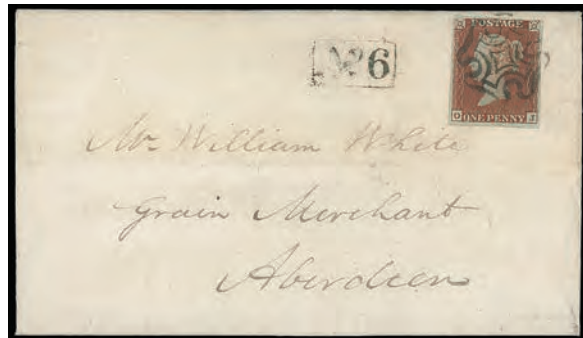 POSTAGE
No 6
O J
ONE PENNY
Mr William White
Grain Merchant
Aberdeen